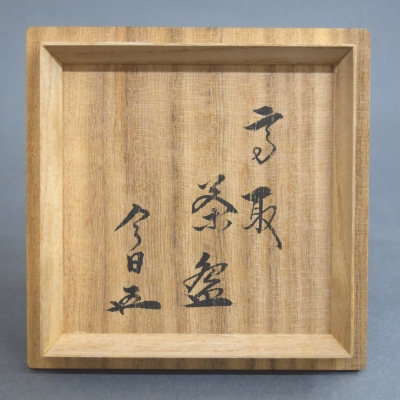 高取
茶盌
今日庵